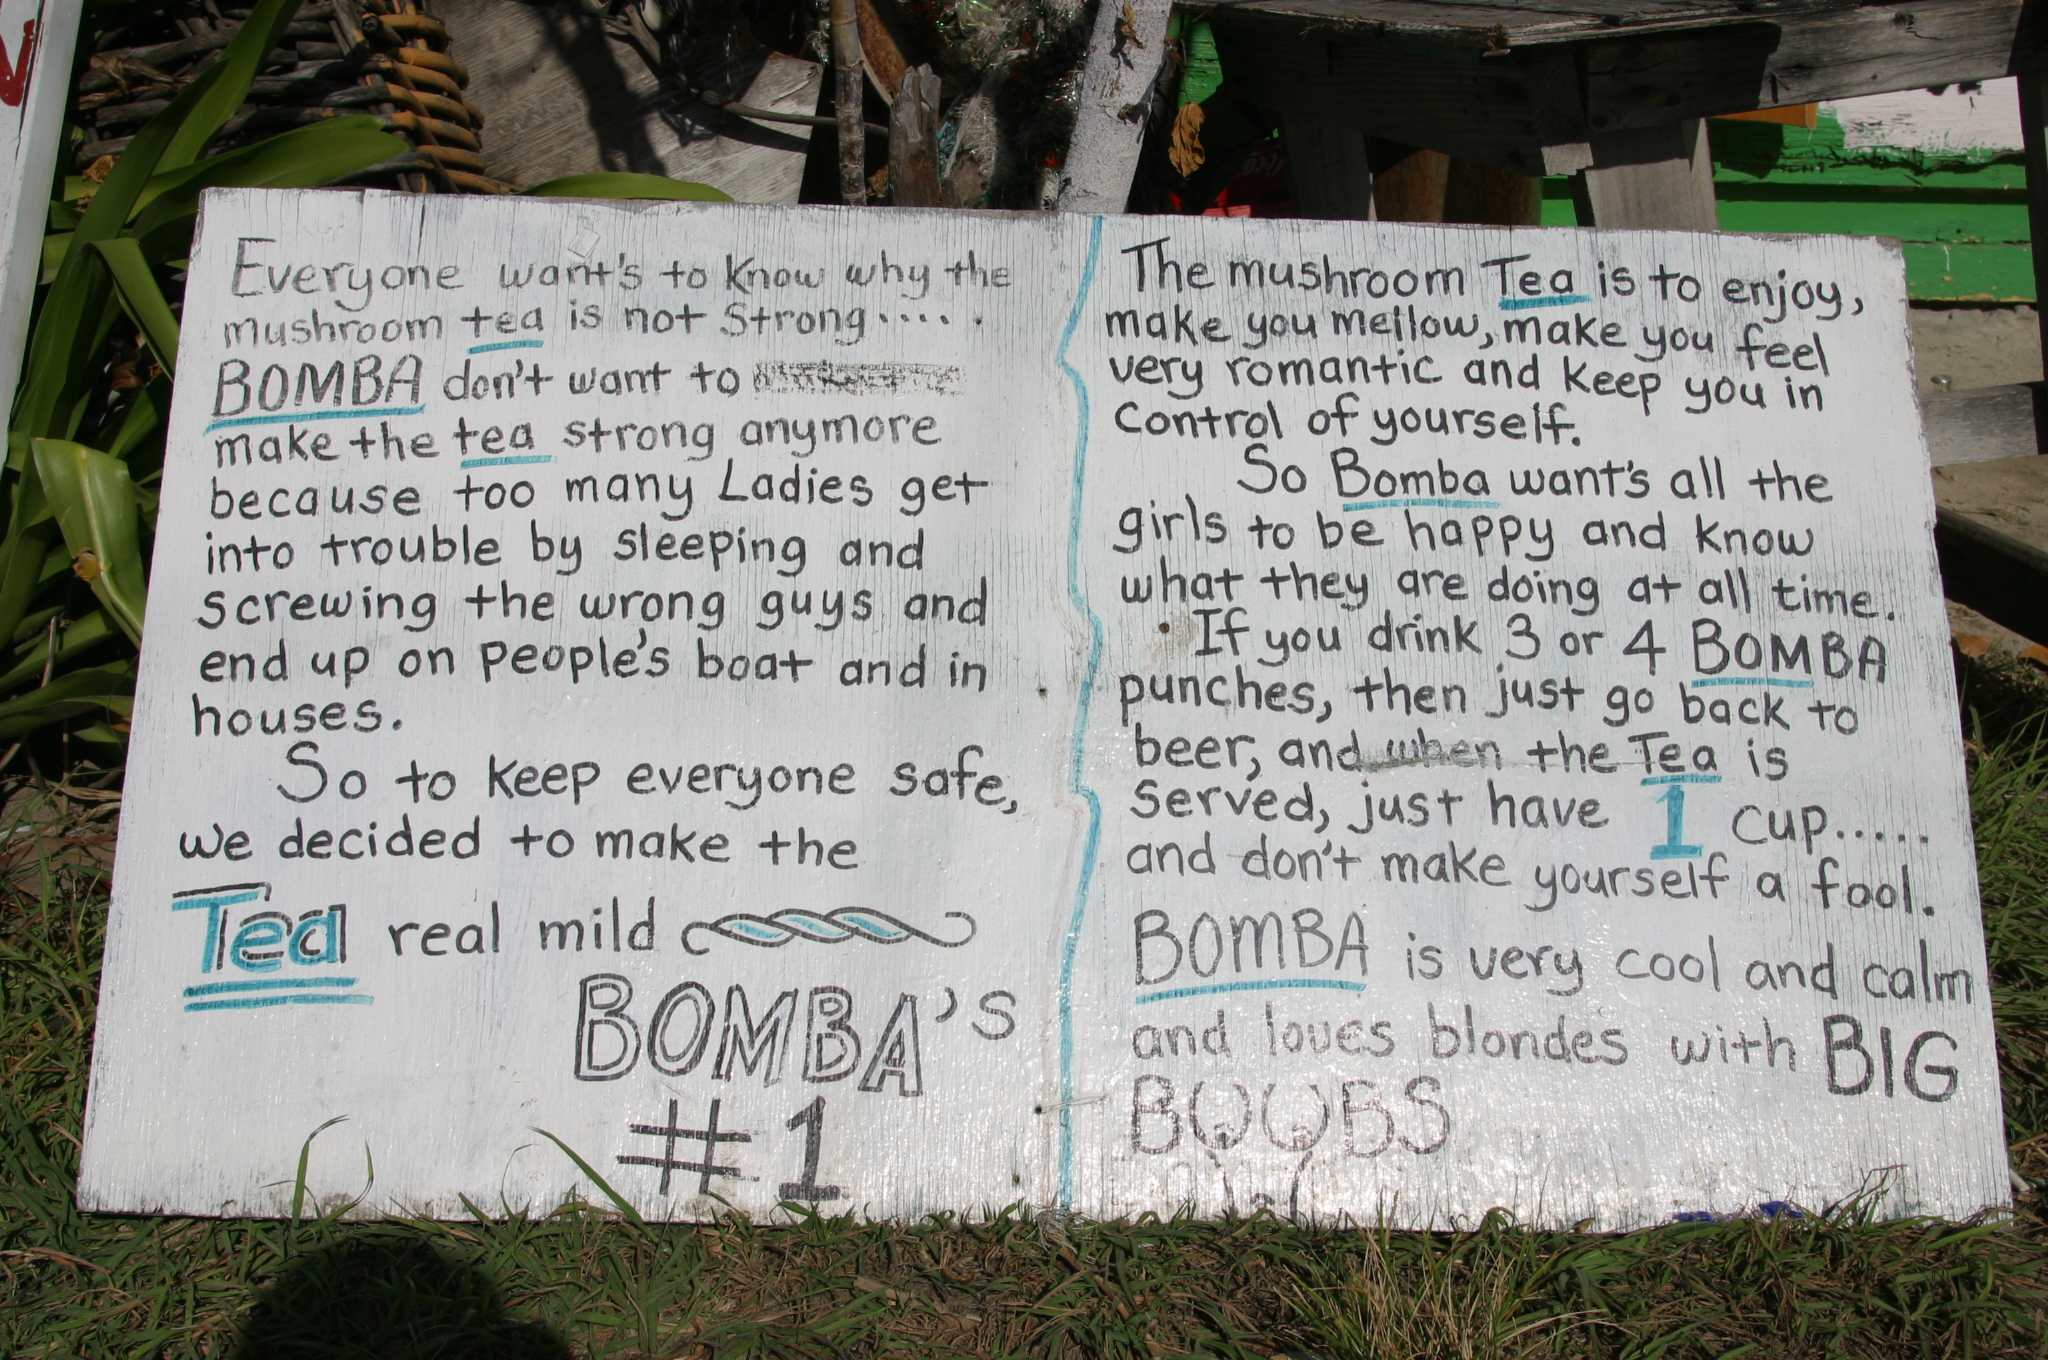 Everyone want's to know why the
mushroom tea is not strong.....
BOMBA don't want to
make the tea strong anymore
because too many Ladies get
into trouble by sleeping and
screwing the wrong guys and
end up on people's boat and in
houses.
So to keep everyone safe,
we decided to make the
Tea real mild
BOMBA's
#1
The mushroom Tea is to enjoy,
make you mellow, make you feel
very romantic and keep you in
control of yourself.
So Bomba want's all the
girls to be happy and know
what they are doing at all time.
If you drink 3 or 4 BOMBA
punches, then just go back to
beer, and when the Tea is
served, just have 1 cup.....
and don't make yourself a fool.
BOMBA is very cool and calm
and loves blondes with BIG
BOOBS